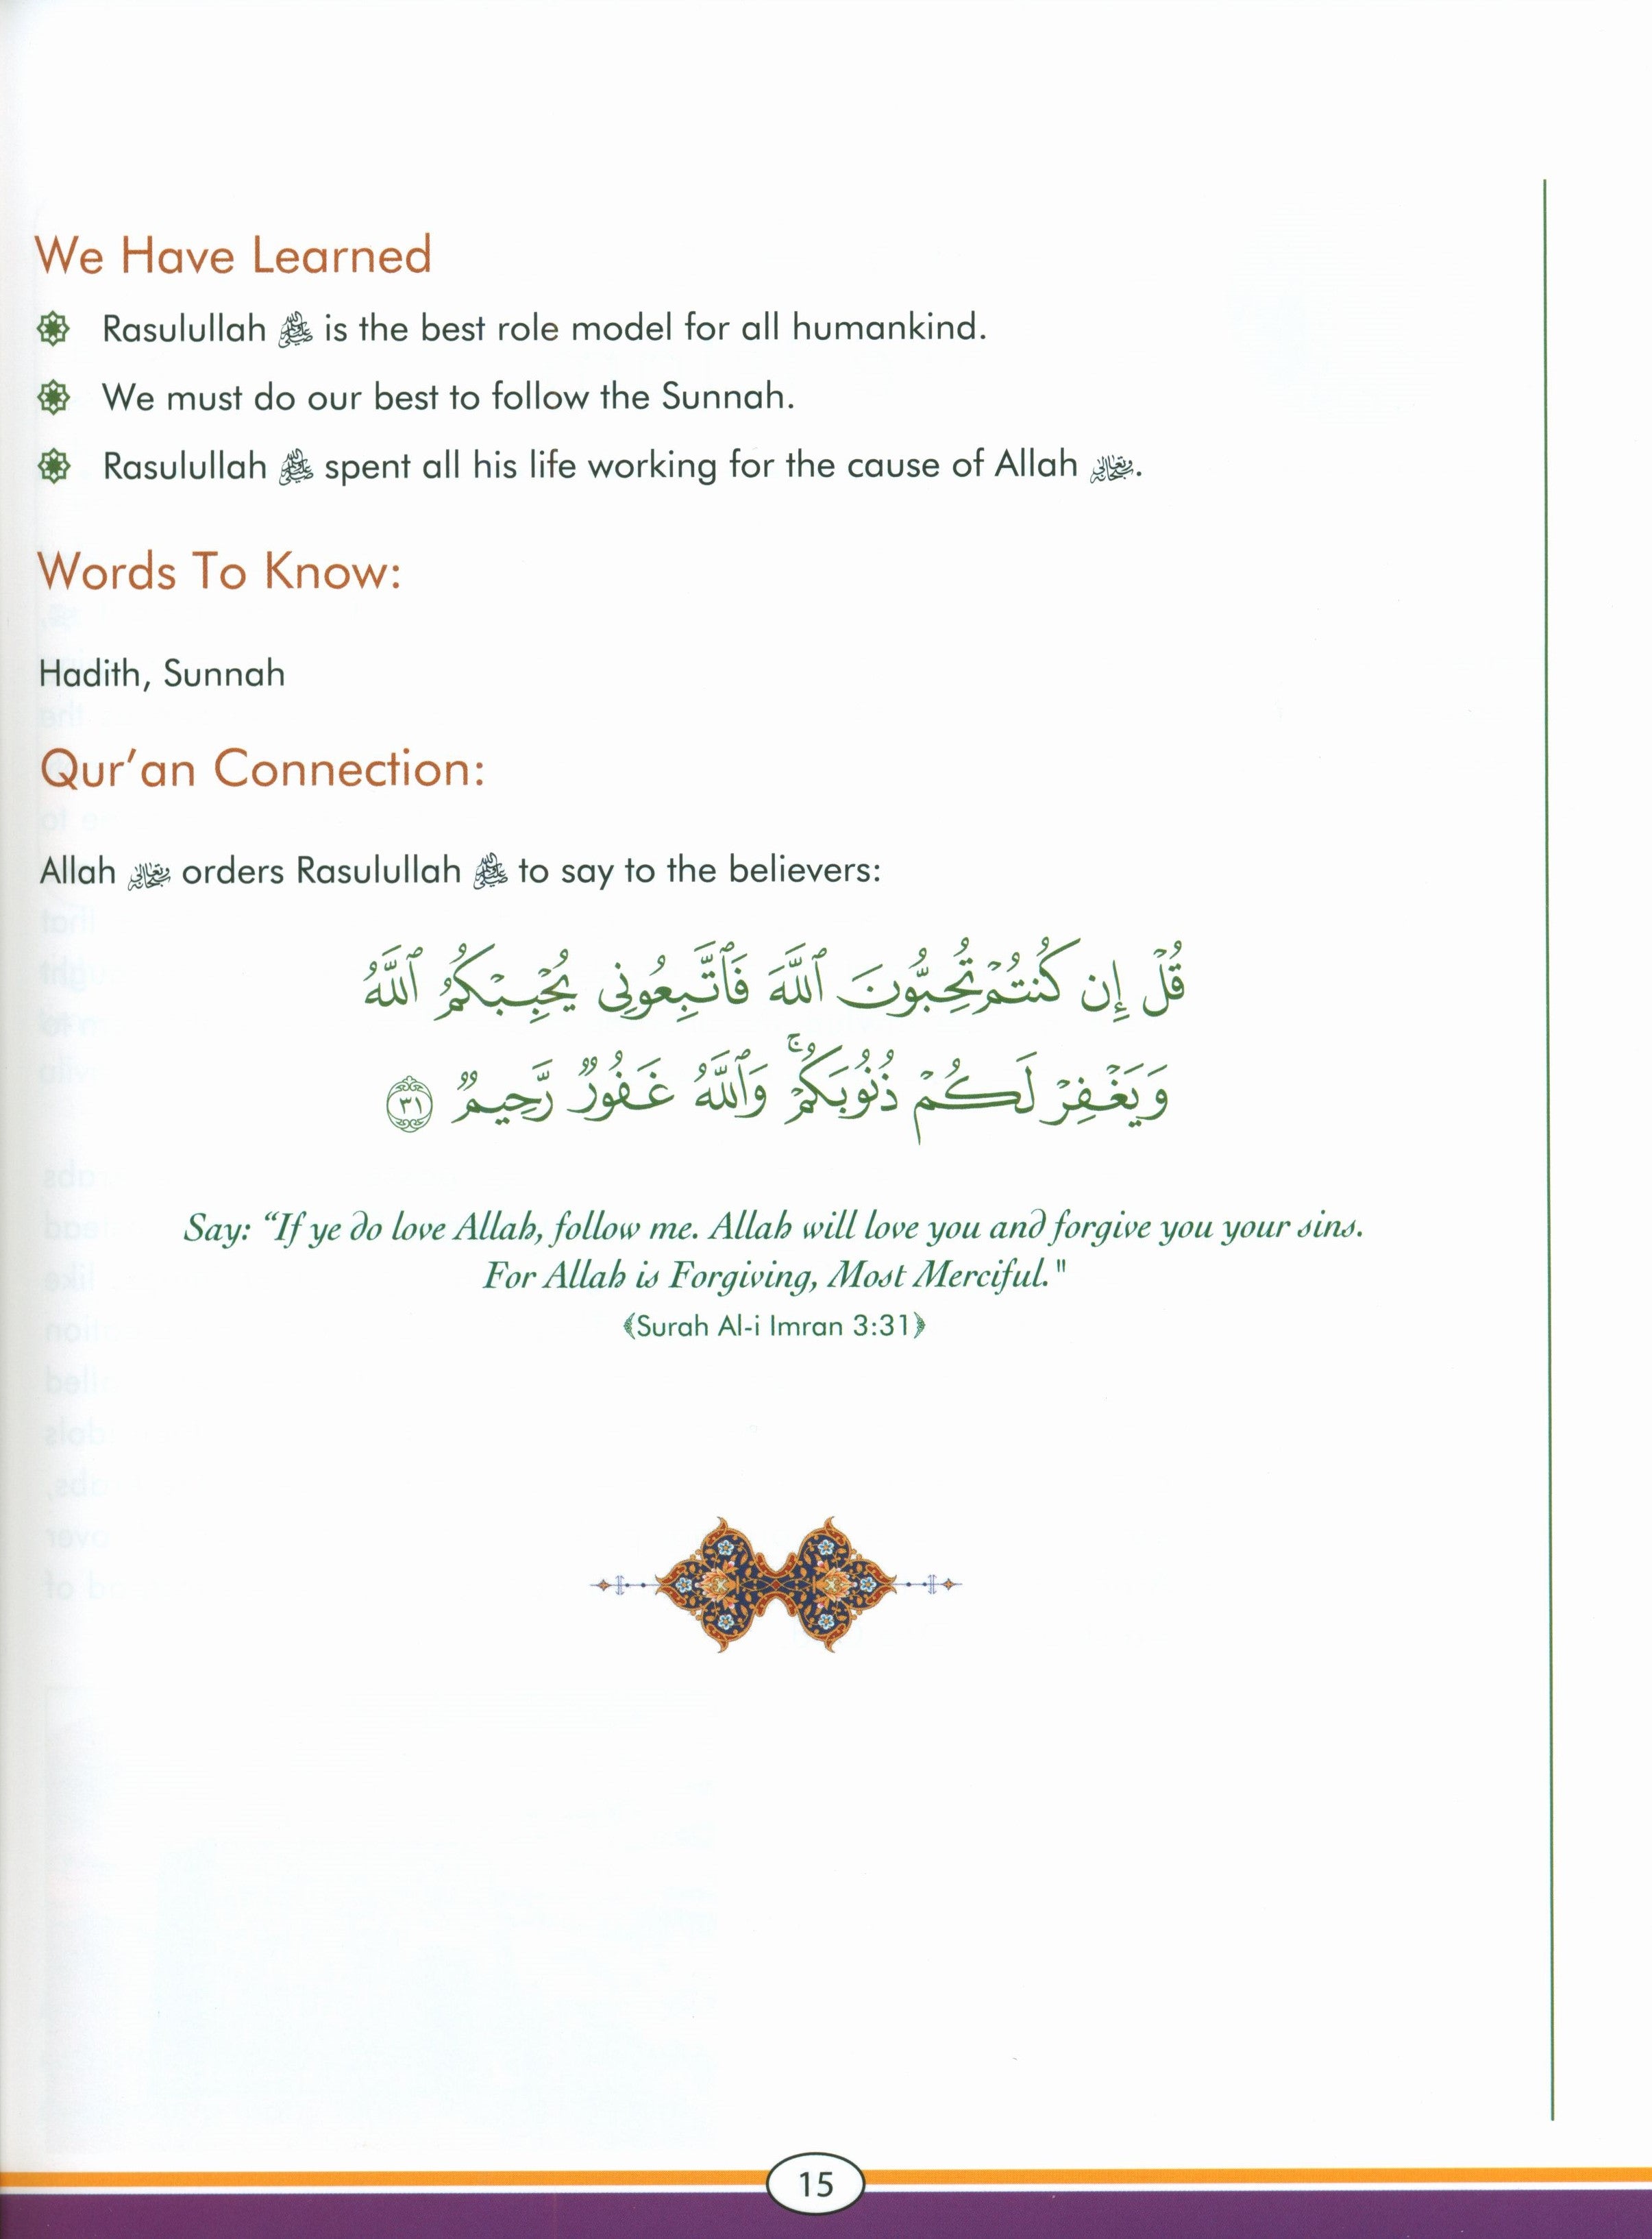 We Have Learned
Rasulullah ﷺ is the best role model for all humankind.
We must do our best to follow the Sunnah.
Rasulullah ﷺ spent all his life working for the cause of Allah سبحانه وتعالى.
Words To Know:
Hadith, Sunnah
Qur’an Connection:
Allah سبحانه وتعالى orders Rasulullah ﷺ to say to the believers:
قُلْ إِن كُنتُمْ تُحِبُّونَ ٱللَّهَ فَٱتَّبِعُونِى يُحْبِبْكُمُ ٱللَّهُ
وَيَغْفِرْ لَكُمْ ذُنُوبَكُمْ ۚ وَٱللَّهُ غَفُورٌ رَّحِيمٌ ٣١
Say: “If ye do love Allah, follow me. Allah will love you and forgive you your sins.
For Allah is Forgiving, Most Merciful."
﴾Surah Al-i Imran 3:31﴿
15